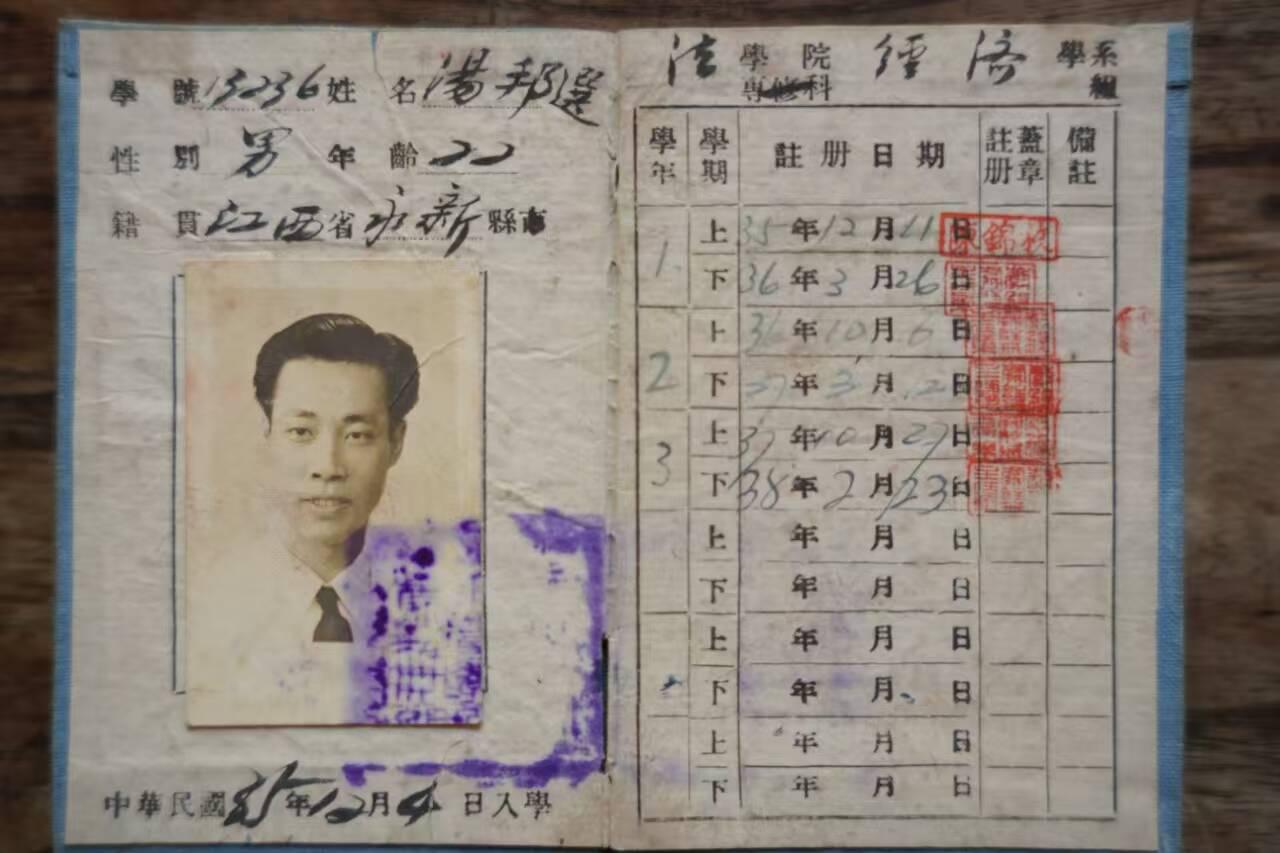 學號 13236 姓名 湯邦選
性別 男 年齡 22
籍貫 江西省永新縣市
中華民國 35年12月4日入學
法學院 經濟學系
專修科 組
學年 學期 註册日期 註册蓋章 備註
1. 上 35年12月11日
下 36年3月26日
2 上 36年10月6日
下 37年3月12日
3 上 37年10月27日
下 38年2月23日
上 年 月 日
下 年 月 日
上 年 月 日
下 年 月 日
上 年 月 日
下 年 月 日